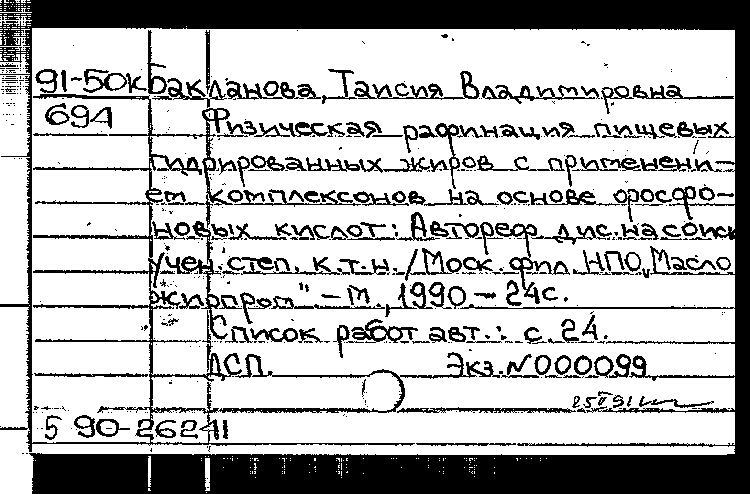 91-50к Бакланова, Таисия Владимировна
694 Физическая рафинация пищевых
гидрированных жиров с применени-
ем комплексонов на основе оросфо-
новых кислот: Автореф. дис. на соиск
учен. степ. к.т.н. / Моск. фил. НПО "Масло
жирпром". - М., 1990. - 24с.
Список работ авт.: с. 24.
ДСП. Экз. N 000099.
5 90-26241